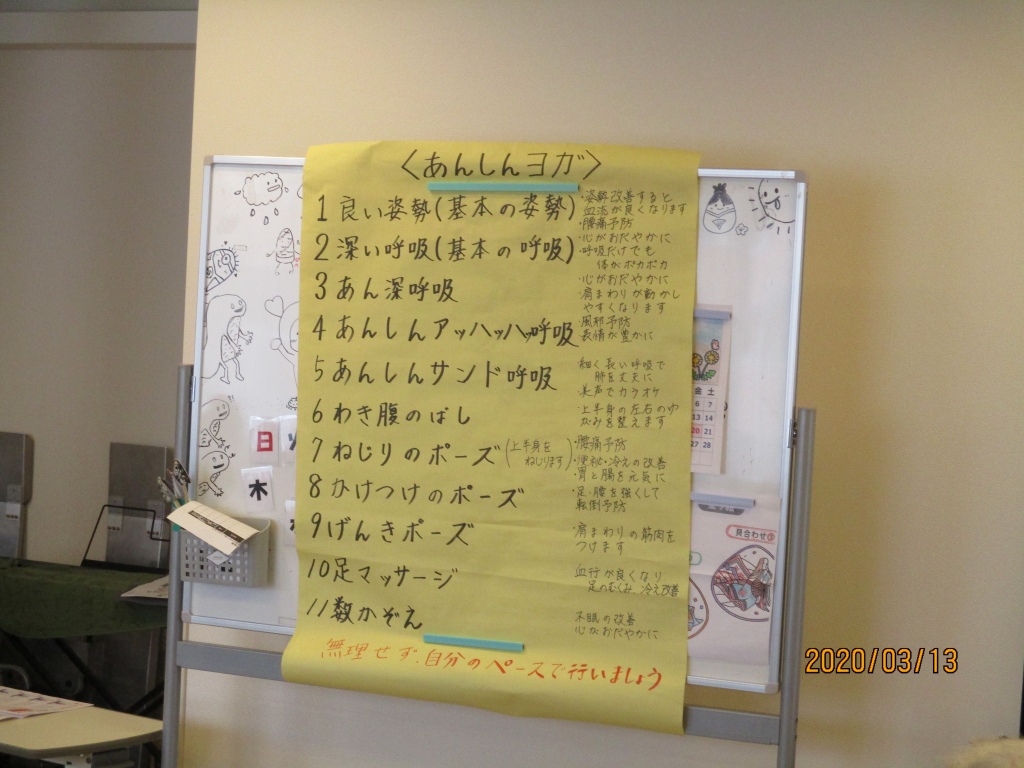 〈あんしんヨガ〉
1 良い姿勢(基本の姿勢)
・姿勢改善すると
血流が良くなります
・腰痛予防
2 深い呼吸(基本の呼吸)
・心がおだやかに
・呼吸だけでも
体がポカポカ
3 あん深呼吸
・心がおだやかに
・肩まわりが動かし
やすくなります
4 あんしんアッハッハッ呼吸
・風邪予防
表情が豊かに
5 あんしんサンド呼吸
細く長い呼吸で
肺を丈夫に
美声でカラオケ
6 わき腹のばし
・上半身の左右のゆ
がみを整えます
7 ねじりのポーズ(上半身を
ねじります)
・腰痛予防
・便秘・冷えの改善
・胃と腸を元気に
8 かけつけのポーズ
・足・腰を強くして
転倒予防
9 げんきポーズ
・肩まわりの筋肉を
つけます
10 足マッサージ
血行が良くなり
足のむくみ、冷え改善
11 数かぞえ
不眠の改善
心がおだやかに
無理せず、自分のペースで行いましょう
日
木
金 土
6 7
13 14
20 21
27 28
見合わせ③
2020/03/13